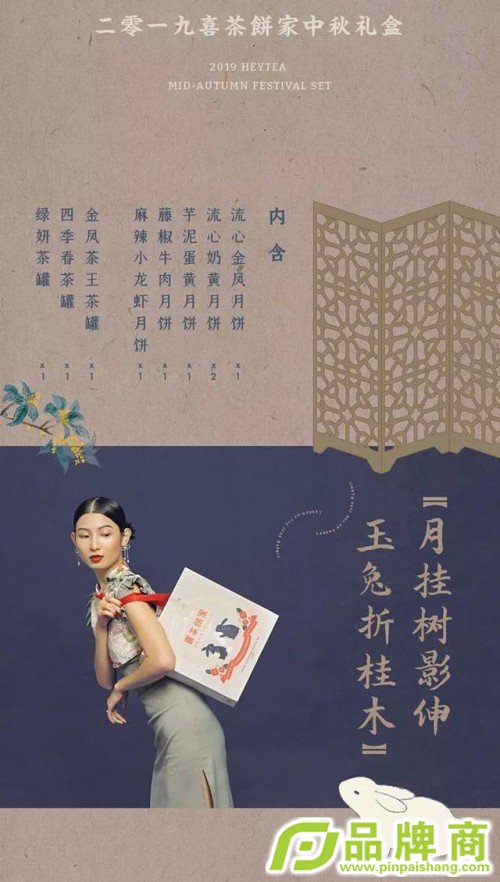 二零一九喜茶餅家中秋礼盒
2019 HEYTEA
MID-AUTUMN FESTIVAL SET
内含
流心金凤月饼 x1
流心奶黄月饼 x2
芋泥蛋黄月饼 x1
藤椒牛肉月饼 x1
麻辣小龙虾月饼 x1
金凤茶王茶罐 x1
四季春茶罐 x1
绿妍茶罐 x1
『月挂树影伸
玉兔折桂木』
喜茶餅家
品牌商
www.pinpaishang.com